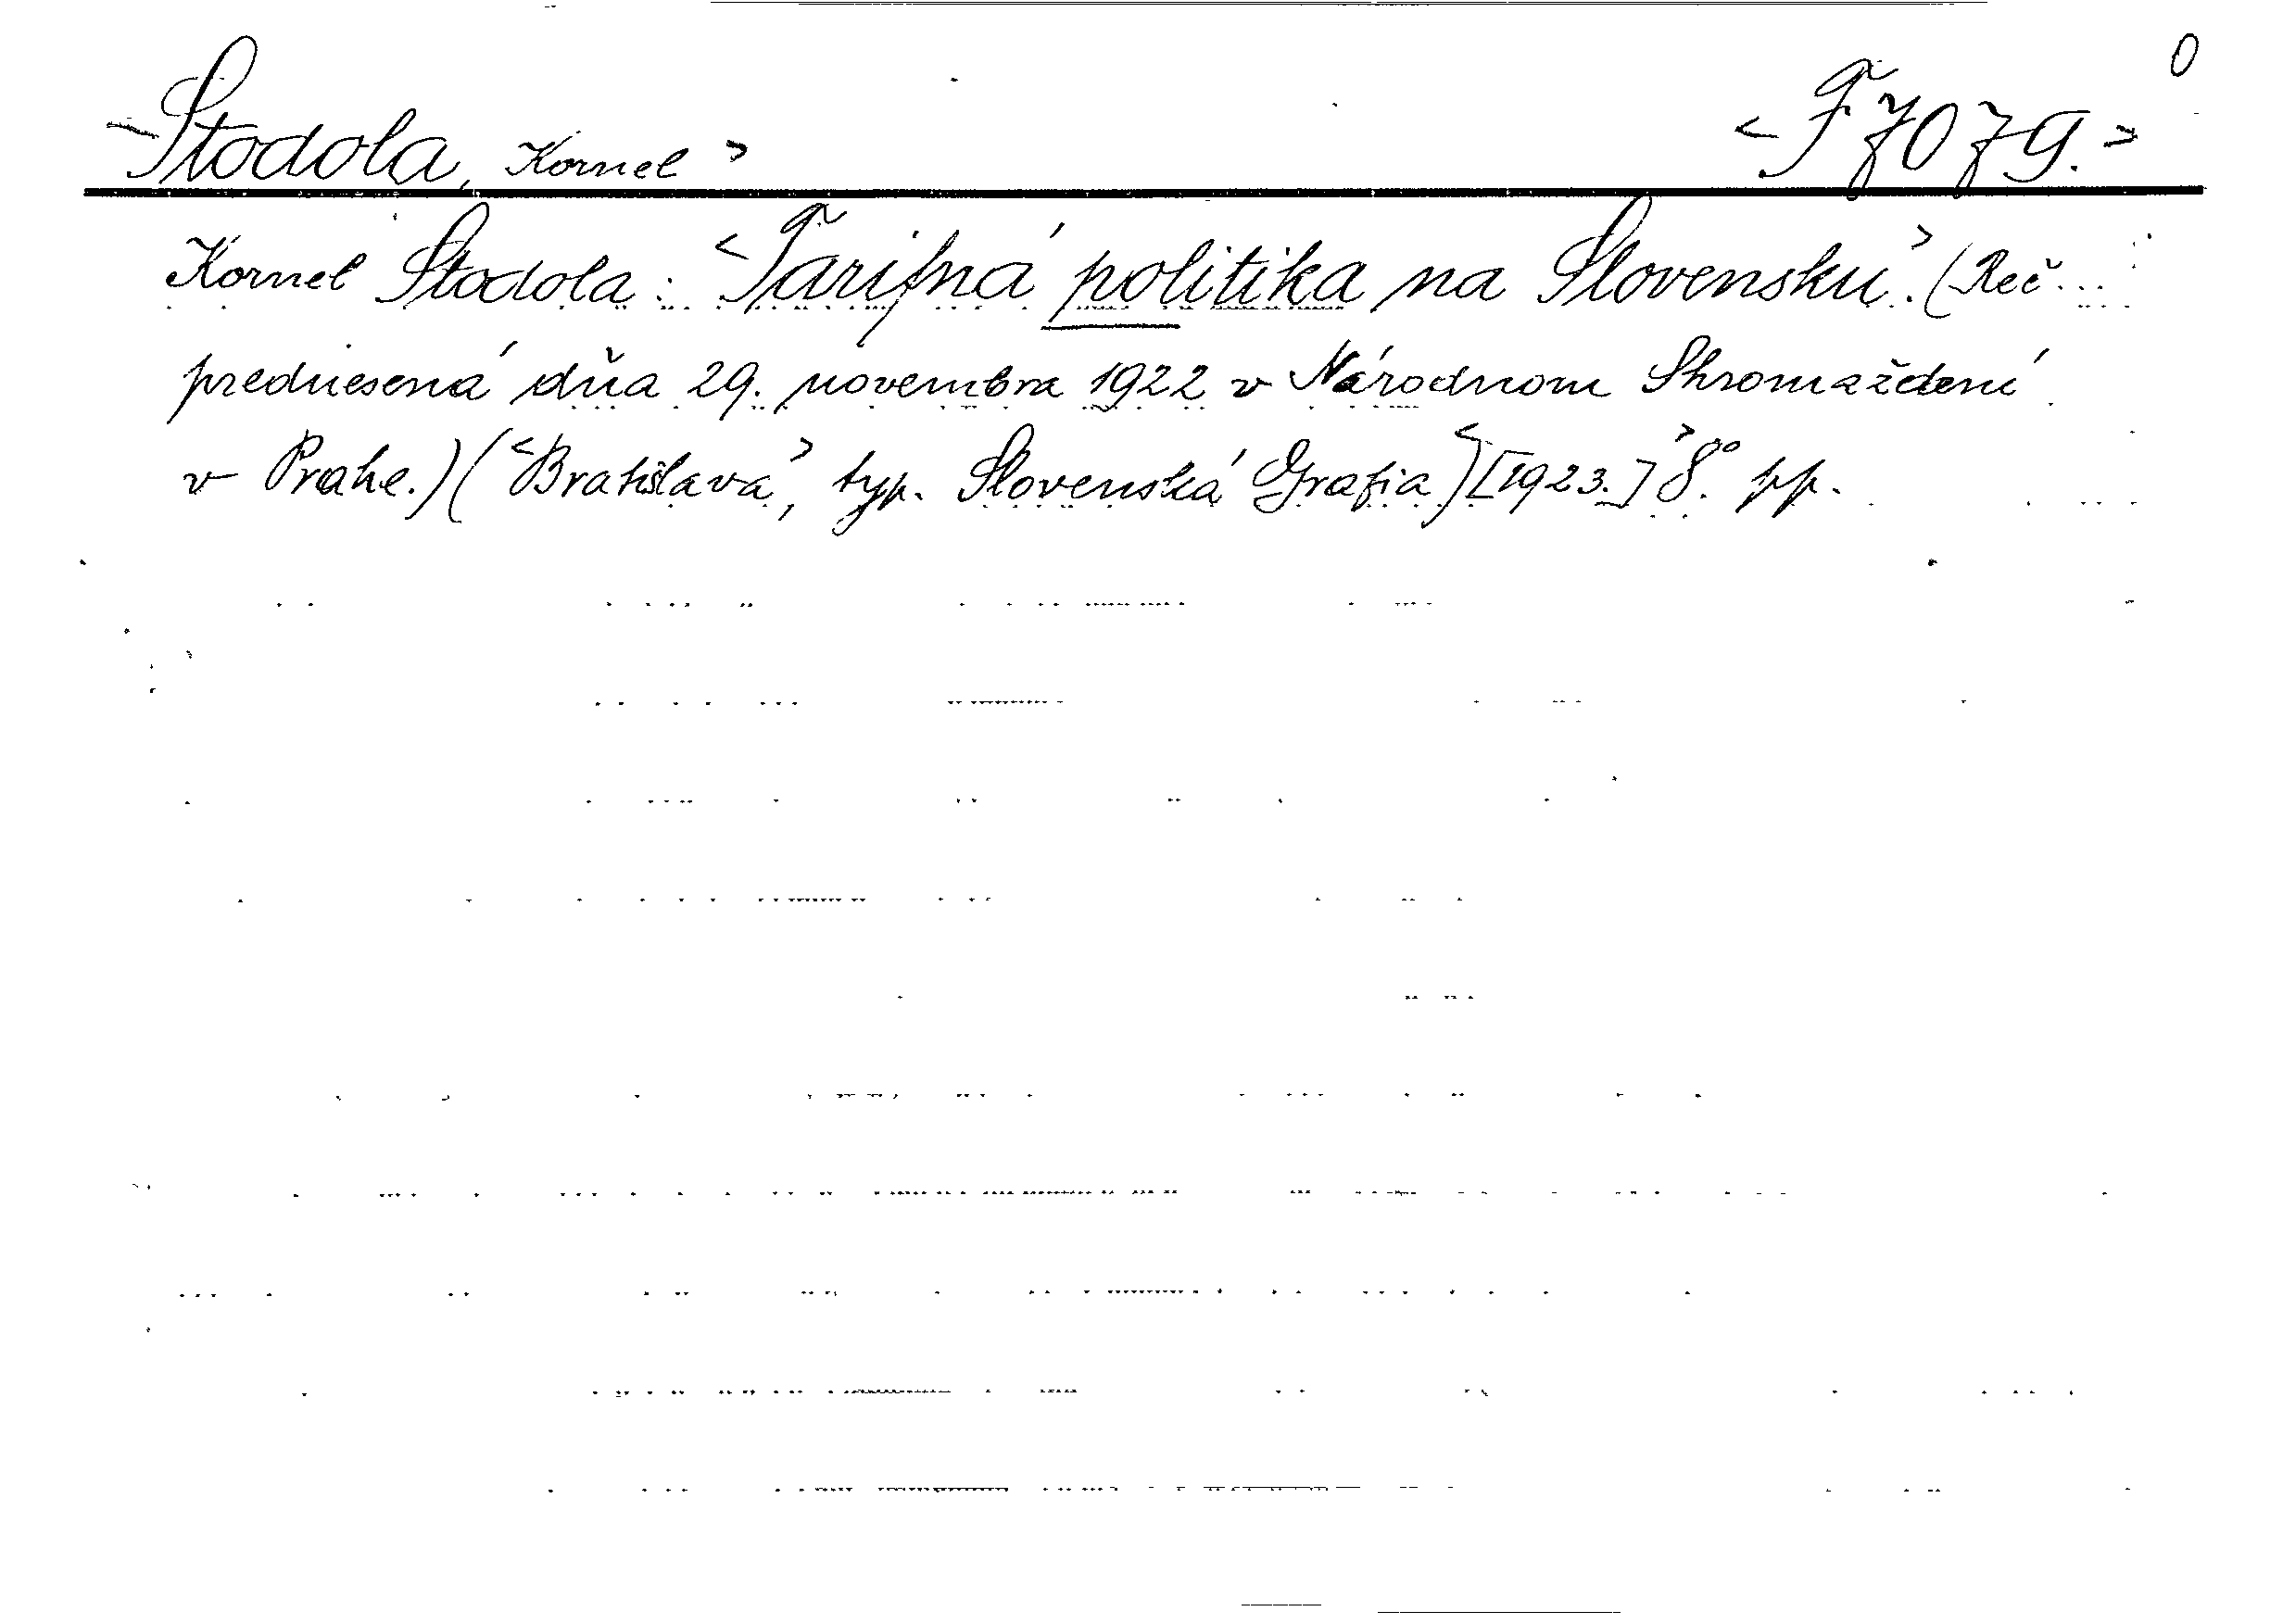 <Stodola, Kornel> <F 7079.> 0
Kornel Stodola: <Tarifná politika na Slovensku>. (Reč...
prednesená dňa 29. novembra 1922 v Národnom Shromaždení
v Prahe.) (<Bratislava>, typ. Slovenská Grafia) <[1923.]> 8°. pp.